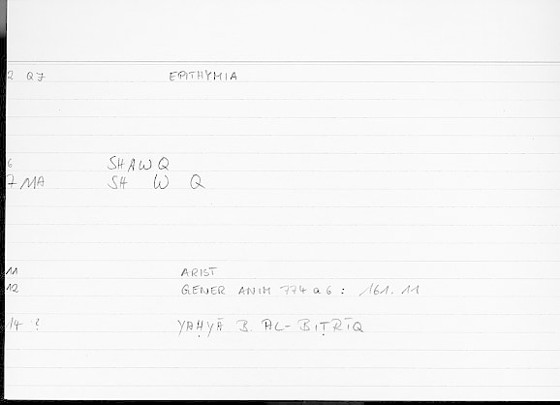 2 QJ EPITHYMIA
6 SHAWQ
7 MA SH W Q
11 ARIST
12 GENER ANIM 774 a 6 : 161. 11
14 ? YAḤYĀ B. AL-BIṬRĪQ